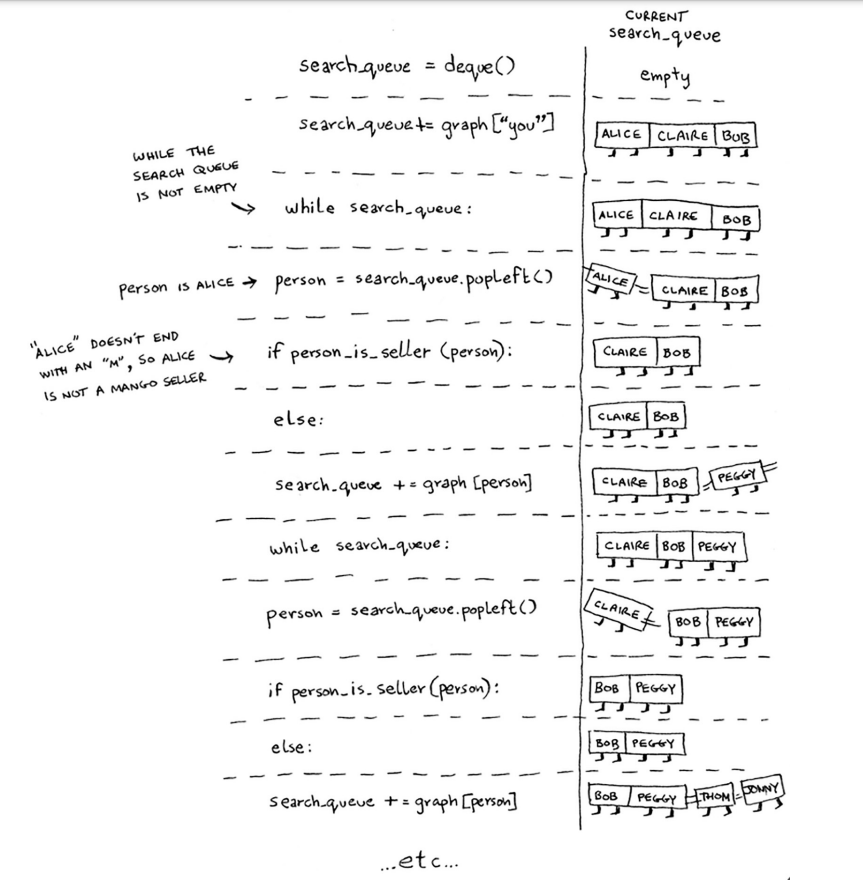 CURRENT
search_queue
search_queue = deque() empty
search_queue += graph["you"] ALICE CLAIRE BOB
WHILE THE
SEARCH QUEUE
IS NOT EMPTY
while search_queue: ALICE CLAIRE BOB
person IS ALICE → person = search_queue.popleft() ALICE CLAIRE BOB
"ALICE" DOESN'T END
WITH AN "M", SO ALICE
IS NOT A MANGO SELLER
if person_is_seller (person): CLAIRE BOB
else: CLAIRE BOB
search_queue += graph[person] CLAIRE BOB PEGGY
while search_queue: CLAIRE BOB PEGGY
person = search_queue.popleft() CLAIRE BOB PEGGY
if person_is_seller(person): BOB PEGGY
else: BOB PEGGY
search_queue += graph[person] BOB PEGGY THOM JONNY
...etc...